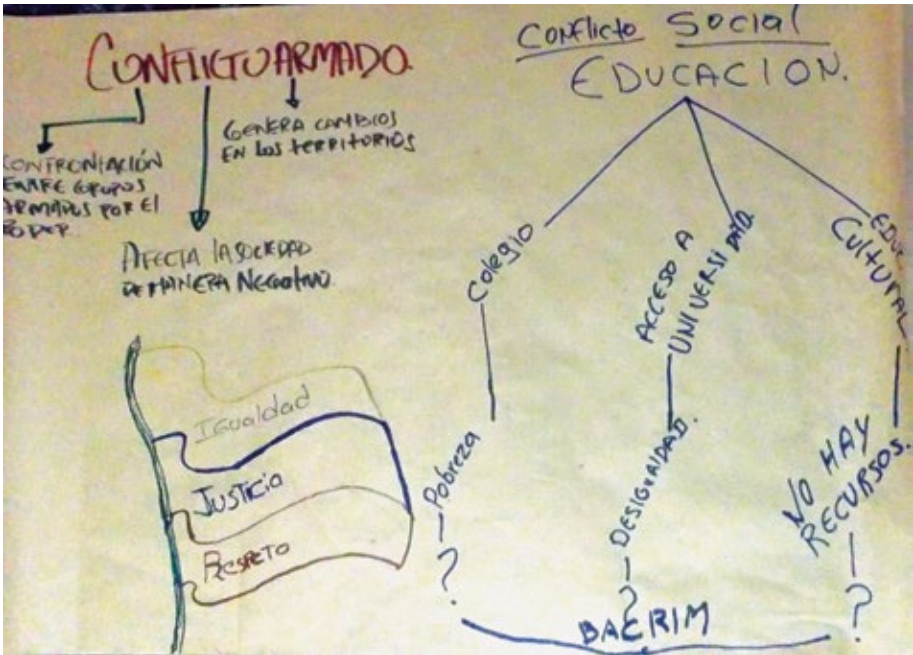 CONFLICTO ARMADO
CONFRONTACIÓN
ENTRE GRUPOS
ARMADOS POR El
PODER.
GENERA CAMBIOS
EN LOS TERRITORIOS
AFECTA lA SOCIEDAD
DE MANERA NEGATIVO.
Igualdad
Justicia
Respeto
Conflicto Social
EDUCACION.
Colegio
Pobreza
?
ACCESO A
UNIVERSIDAD
DESIGUALDAD.
?
EDUC
CULTURAL
NO HAY
RECURSOS.
?
BACRIM